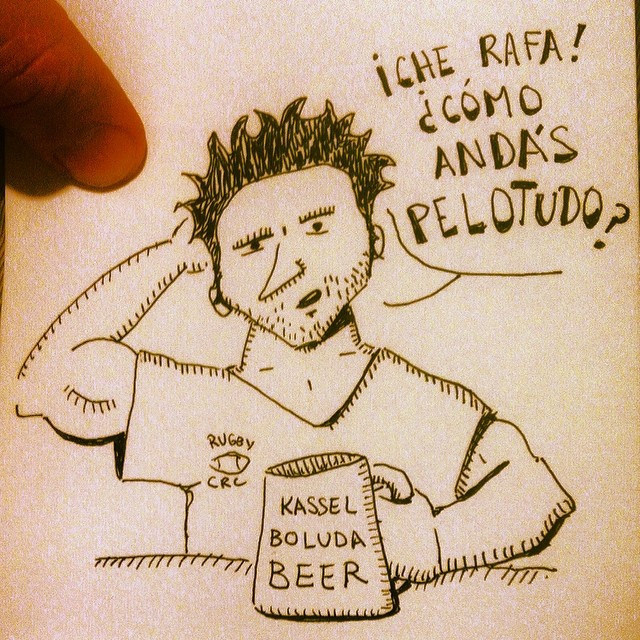 ¡CHE RAFA!
¿CÓMO
ANDÁS
PELOTUDO?
RUGBY
CRC
KASSEL
BOLUDA
BEER